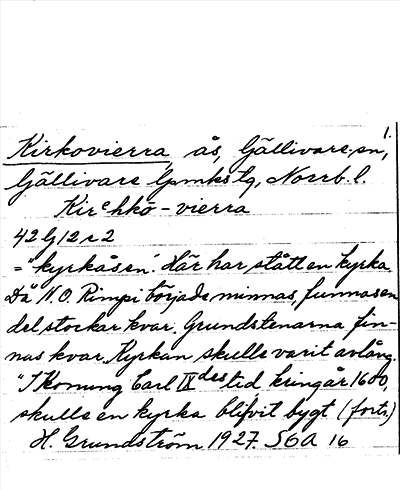 1.
Kirkovierra, ås, Gällivare sn,
Gällivare lpmks tg, Norrb. l.
Kirᵉhkō-vierra
42 G/2 r 2
= "kyrkåsen". Här har stått en kyrka.
Då N.O. Rimpi började minnas, funnos en
del stockar kvar. Grundstenarna fin-
nas kvar. Kyrkan skulle varit avlång.
"I Konung Carl IX des tid kring år 1600,
skulle en kyrka blifvit bygt (forts.)
H. Grundström 1927. S6A 16